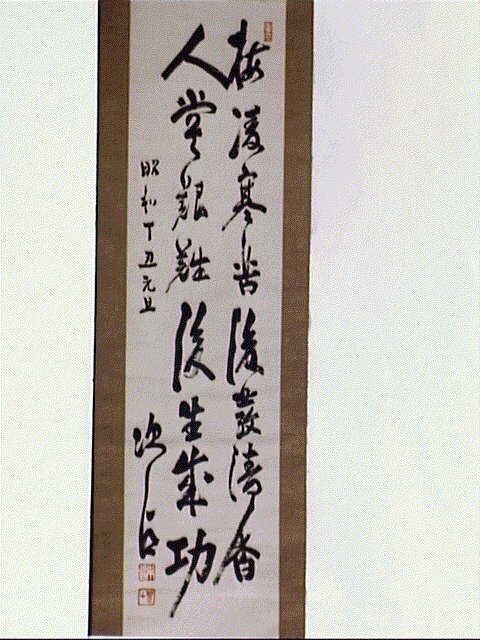 梅凌寒苦後發清香
人嘗艱難後生成功
昭和丁丑元旦